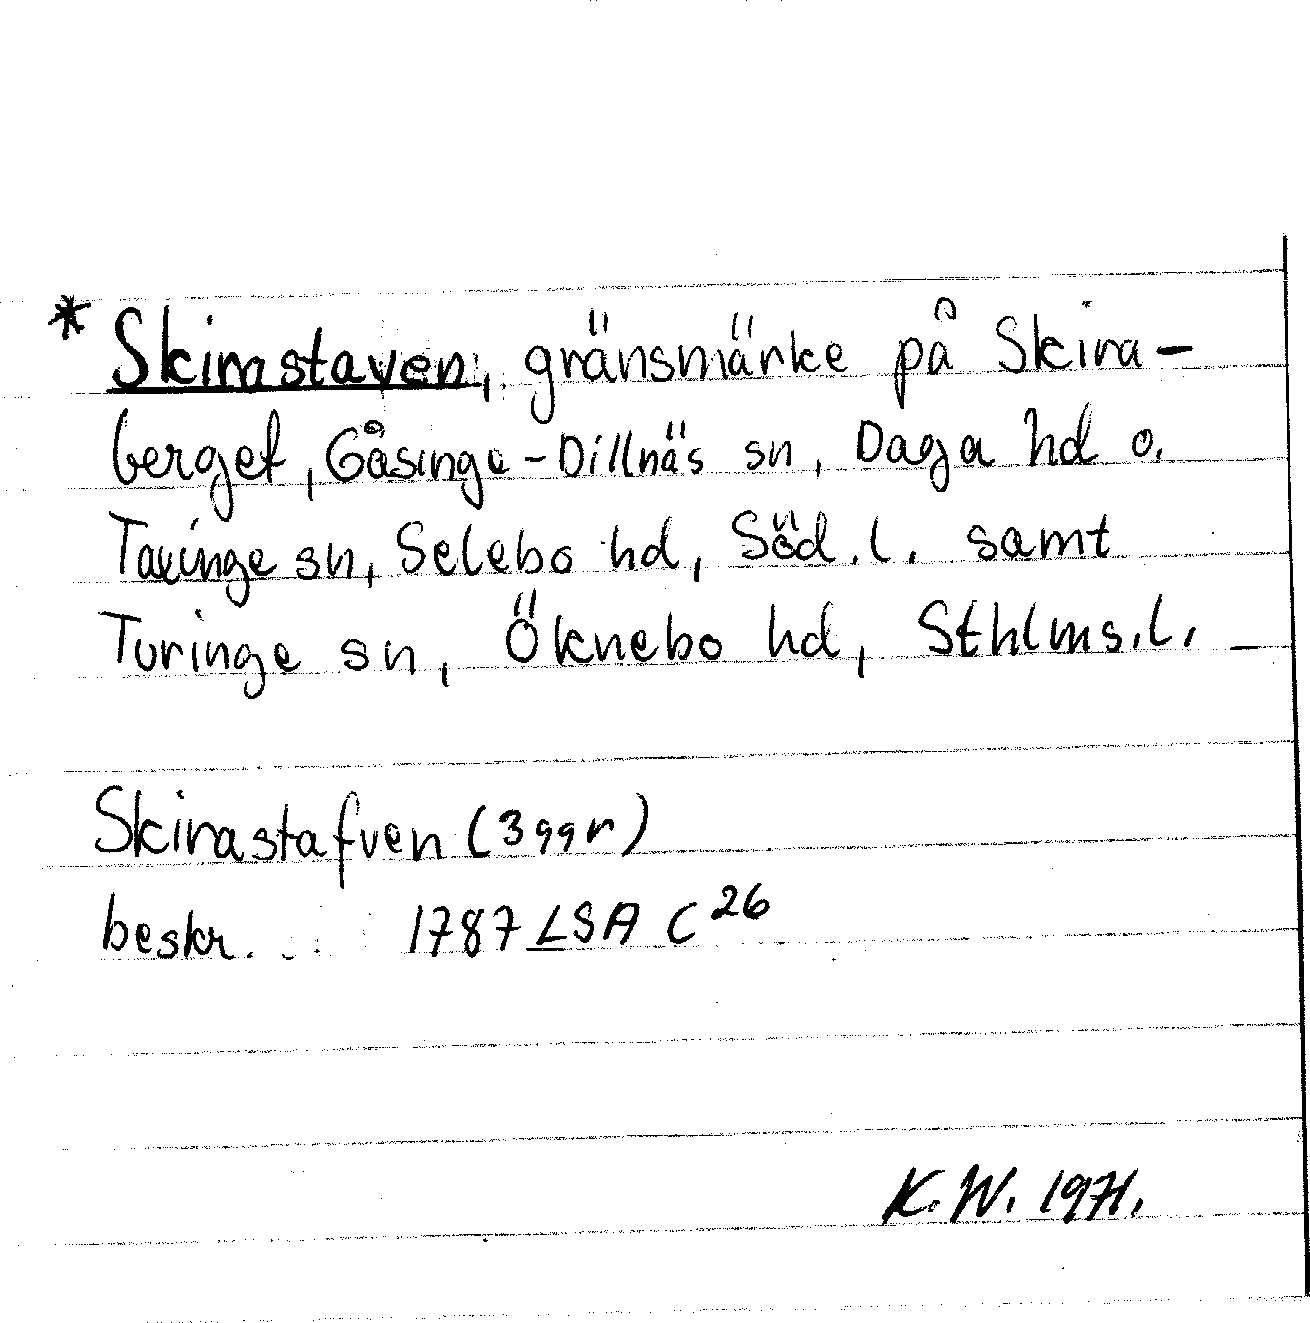 * Skirastaven, gränsmärke på Skira-
berget, Gåsinge-Dillnäs sn, Daga hd o.
Taxinge sn, Selebo hd, Söd.l. samt
Turinge sn, Öknebo hd, Sthlms.l. _
Skirastafven (3 ggr)
beskr. . . 1787 LSA C 26
K.W. 1971.